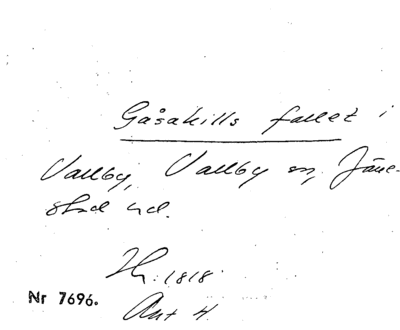 Gåsakills fallet i
Vallby, Vallby sn, Järre-
stad hd.
Hr. 1818.
Nr 7696.
Ant 4